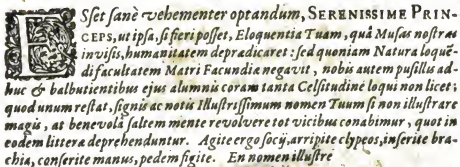 ESset sanè vehementer optandum, SERENISSIME PRIN-
CEPS, ut ipsa, si fieri posset, Eloquentia Tuam, quâ Musas nostras
invisis, humanitatem depraedicaret: sed quoniam Natura loquē-
di facultatem Matri Facundiae negavit, nobis autem pusillis ad-
huc & balbutientibus ejus alumnis coram tanta Celsitudine loqui non licet;
quod unum restat, signis ac notis Illustrissimum nomen Tuum si non illustrare
magis, at benevolâ saltem mente revolvere tot vicibus conabimur, quot in
eodem litterae deprehenduntur. Agite ergo socij, arripite clypeos, inserite bra-
chia, conserite manus, pedem figite. En nomen illustre